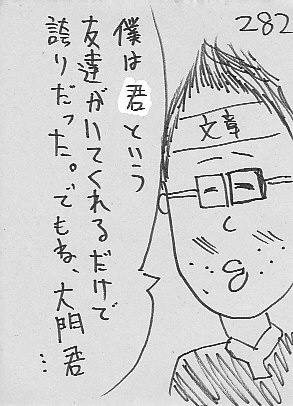 282
文章
僕は君という
友達がいてくれるだけで
誇りだった。でもね、大門君…